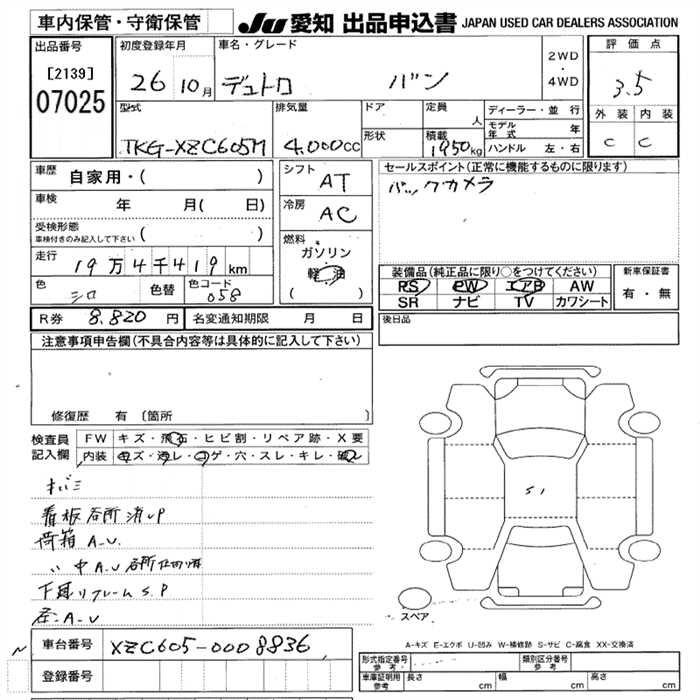 車内保管・守衛保管
JU 愛知 出品申込書 JAPAN USED CAR DEALERS ASSOCIATION
出品番号
[2139]
07025
初度登録年月
26 10月
車名・グレード
デュトロ バン
2WD
・
4WD
評価点
3.5
外装 内装
C C
型式
TKG-XZC605M
排気量
4.000cc
ドア
形状
定員
人
積載
1950kg
ディーラー・並 行
モデル年式 年
ハンドル 左・右
車歴
自家用・( )
車検
年 月( 日)
受検形態
車検付きのみ記入して下さい ( )
走行
19万4千419km
色
シロ
色替
色コード
058
シフト
AT
冷房
AC
燃料
ガソリン
軽油
( )
セールスポイント(正常に機能するものに限ります)
バックカメラ
装備品(純正品に限り○をつけてください)
PS PW エアB AW
SR ナビ TV カワシート
新車保証書
有・無
R券 8.820円
名変通知期限 月 日
後日品
注意事項申告欄(不具合内容等は具体的に記入して下さい)
修復歴 有 [箇所
検査員
記入欄
FW キズ・飛石・ヒビ割・リペア跡・X要
内装 キズ・汚レ・コゲ・穴・スレ・キレ・破レ
看板各所済UP
荷箱 A.U.
〃 中 A.U
下廻リフレームS.P
A-U
S1
スペア
A-キズ E-エクボ U-凹み W-補修跡 S-サビ C-腐食 XX-交換済
車台番号 XZC605-0008836
登録番号
形式指定番号
参考
類別区分番号
参考
車庫証明用
参考
長さ cm
幅 cm
高さ cm